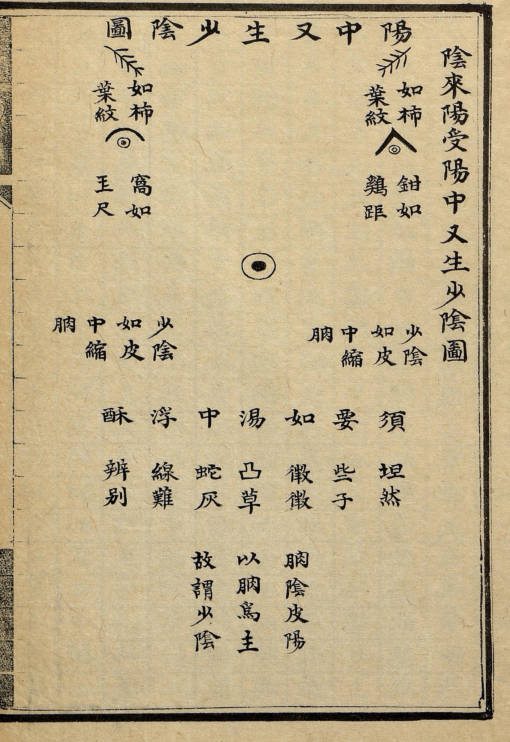 陰來陽受陽中又生少陰圖
陽中又生少陰圖
如柿
葉紋
鉗如
鷄距
如柿
葉紋
窩如
玉尺
少陰
如皮
中縮
朒
少陰
如皮
中縮
朒
須要如湯中浮酥
坦然
些子
微微
凸草
蛇灰
線難
辨别
朒陰皮陽
以朒為主
故謂少陰